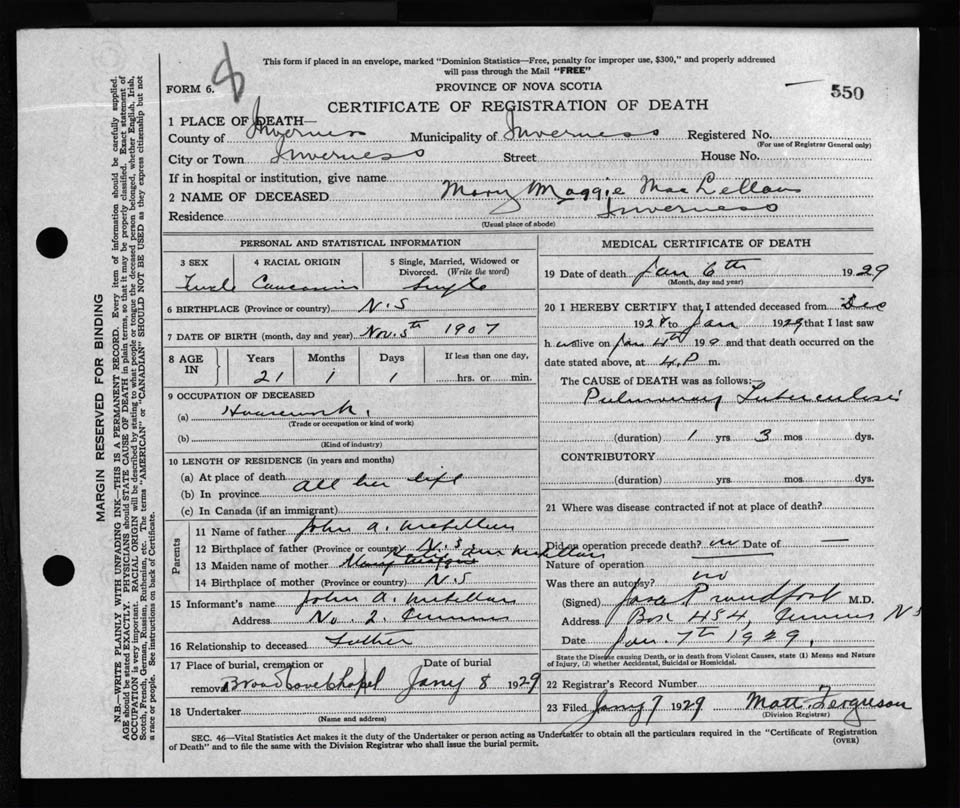 This form if placed in an envelope, marked "Dominion Statistics—Free, penalty for improper use, $300," and properly addressed
will pass through the Mail "FREE"
FORM 6.
8
PROVINCE OF NOVA SCOTIA
550
CERTIFICATE OF REGISTRATION OF DEATH
1 PLACE OF DEATH—
County of Inverness Municipality of Inverness Registered No.
(For use of Registrar General only)
City or Town Inverness Street House No.
If in hospital or institution, give name
2 NAME OF DECEASED Mary Maggie MacLellan
Residence Inverness
(Usual place of abode)
PERSONAL AND STATISTICAL INFORMATION
3 SEX 4 RACIAL ORIGIN 5 Single, Married, Widowed or
Divorced. (Write the word)
Single
6 BIRTHPLACE (Province or country) N.S
7 DATE OF BIRTH (month, day and year) Nov. 5th 1907
8 AGE IN Years Months Days If less than one day,
21 1 1 hrs. or min.
9 OCCUPATION OF DECEASED
(a) Housework.
(Trade or occupation or kind of work)
(b)
(Kind of industry)
10 LENGTH OF RESIDENCE (in years and months)
(a) At place of death all her life
(b) In province
(c) In Canada (if an immigrant)
Parents
11 Name of father John A. McLellan
12 Birthplace of father (Province or country) N.S.
13 Maiden name of mother Ann McLellan
14 Birthplace of mother (Province or country) N.S
15 Informant's name John A. McLellan
Address No. 2.
16 Relationship to deceased Father
17 Place of burial, cremation or Date of burial
removal Broad Cove Chapel Jany 8 1929
18 Undertaker
(Name and address)
MEDICAL CERTIFICATE OF DEATH
19 Date of death Jan 6th 1929
(Month, day and year)
20 I HEREBY CERTIFY that I attended deceased from Dec
1928 to Jan 1929 that I last saw
alive on Jan 4th 19 and that death occurred on the
date stated above, at 4. P m.
The CAUSE of DEATH was as follows:—
Pulmonary Tuberculosis
(duration) 1 yrs 3 mos dys.
CONTRIBUTORY
(duration) yrs. mos. dys.
21 Where was disease contracted if not at place of death?
Did an operation precede death? no Date of —
Nature of operation
Was there an autopsy? no
(Signed) M.D.
Address Box 454, NS
Date Jan. 7th 1929.
State the Disease causing Death, or in death from Violent Causes, state (1) Means and Nature
of Injury, (2) whether Accidental, Suicidal or Homicidal.
22 Registrar's Record Number
23 Filed Jany 9 1929 Matt. Ferguson
(Division Registrar)
SEC. 46—Vital Statistics Act makes it the duty of the Undertaker or person acting as Undertaker to obtain all the particulars required in the "Certificate of Registration
of Death" and to file the same with the Division Registrar who shall issue the burial permit.
(OVER)
MARGIN RESERVED FOR BINDING
N.B.—WRITE PLAINLY WITH UNFADING INK—THIS IS A PERMANENT RECORD. Every item of information should be carefully supplied.
AGE should be stated EXACTLY. PHYSICIANS should STATE CAUSE OF DEATH in plain terms, so that it may be properly classified. Exact statement of
OCCUPATION is very important. RACIAL ORIGIN will be described by stating to what people or tongue the deceased person belonged, whether English, Irish,
Scotch, French, German, Russian, Ruthenian, etc. The terms "AMERICAN" or "CANADIAN" SHOULD NOT BE USED as they express citizenship but not
a race or people. See instructions on back of Certificate.